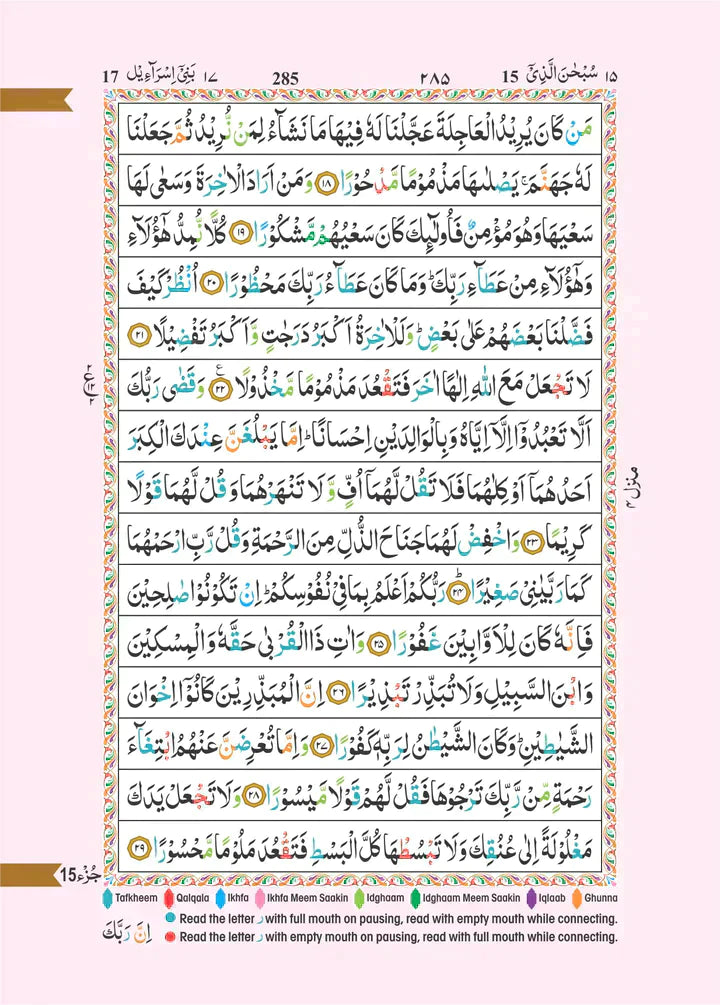 17 بَنِیْٓ اِسْرَآءِیْل ۱۷ 285 ۲۸۵ 15 سُبْحٰنَ الَّذِیْٓ ۱۵
مَنْ كَانَ یُرِیْدُ الْعَاجِلَةَ عَجَّلْنَا لَهٗ فِیْهَا مَا نَشَآءُ لِمَنْ نُّرِیْدُ ثُمَّ جَعَلْنَا
لَهٗ جَهَنَّمَ ۚ یَصْلٰىهَا مَذْمُوْمًا مَّدْحُوْرًا ۱۸ وَمَنْ اَرَادَ الْاٰخِرَةَ وَسَعٰى لَهَا
سَعْیَهَا وَهُوَ مُؤْمِنٌ فَاُولٰٓىِٕكَ كَانَ سَعْیُهُمْ مَّشْكُوْرًا ۱۹ كُلًّا نُّمِدُّ هٰۤؤُلَآءِ
وَهٰۤؤُلَآءِ مِنْ عَطَآءِ رَبِّكَ ؕ وَمَا كَانَ عَطَآءُ رَبِّكَ مَحْظُوْرًا ۲۰ اُنْظُرْ كَیْفَ
فَضَّلْنَا بَعْضَهُمْ عَلٰى بَعْضٍ ؕ وَلَلْاٰخِرَةُ اَكْبَرُ دَرَجٰتٍ وَّاَكْبَرُ تَفْضِیْلًا ۲۱
لَا تَجْعَلْ مَعَ اللّٰهِ اِلٰهًا اٰخَرَ فَتَقْعُدَ مَذْمُوْمًا مَّخْذُوْلًا ۲۲ ع وَقَضٰى رَبُّكَ
اَلَّا تَعْبُدُوْٓا اِلَّآ اِیَّاهُ وَبِالْوَالِدَیْنِ اِحْسَانًا ؕ اِمَّا یَبْلُغَنَّ عِنْدَكَ الْكِبَرَ
اَحَدُهُمَآ اَوْ كِلٰهُمَا فَلَا تَقُلْ لَّهُمَآ اُفٍّ وَّلَا تَنْهَرْهُمَا وَقُلْ لَّهُمَا قَوْلًا
كَرِیْمًا ۲۳ وَاخْفِضْ لَهُمَا جَنَاحَ الذُّلِّ مِنَ الرَّحْمَةِ وَقُلْ رَّبِّ ارْحَمْهُمَا
كَمَا رَبَّیٰنِیْ صَغِیْرًا ۲۴ ؕ رَبُّكُمْ اَعْلَمُ بِمَا فِیْ نُفُوْسِكُمْ ؕ اِنْ تَكُوْنُوْا صٰلِحِیْنَ
فَاِنَّهٗ كَانَ لِلْاَوَّابِیْنَ غَفُوْرًا ۲۵ وَاٰتِ ذَا الْقُرْبٰى حَقَّهٗ وَالْمِسْكِیْنَ
وَابْنَ السَّبِیْلِ وَلَا تُبَذِّرْ تَبْذِیْرًا ۲۶ اِنَّ الْمُبَذِّرِیْنَ كَانُوْٓا اِخْوَانَ
الشَّیٰطِیْنِ ؕ وَكَانَ الشَّیْطٰنُ لِرَبِّهٖ كَفُوْرًا ۲۷ وَاِمَّا تُعْرِضَنَّ عَنْهُمُ ابْتِغَآءَ
رَحْمَةٍ مِّنْ رَّبِّكَ تَرْجُوْهَا فَقُلْ لَّهُمْ قَوْلًا مَّیْسُوْرًا ۲۸ وَلَا تَجْعَلْ یَدَكَ
مَغْلُوْلَةً اِلٰى عُنُقِكَ وَلَا تَبْسُطْهَا كُلَّ الْبَسْطِ فَتَقْعُدَ مَلُوْمًا مَّحْسُوْرًا ۲۹
۲ ع ۱۲ ۲
منزل ۴
جُزْء 15
Tafkheem Qalqala Ikhfa Ikhfa Meem Saakin Idghaam Idghaam Meem Saakin Iqlaab Ghunna
Read the letter ر with full mouth on pausing, read with empty mouth while connecting.
Read the letter ر with empty mouth on pausing, read with full mouth while connecting.
اِنَّ رَبَّكَ